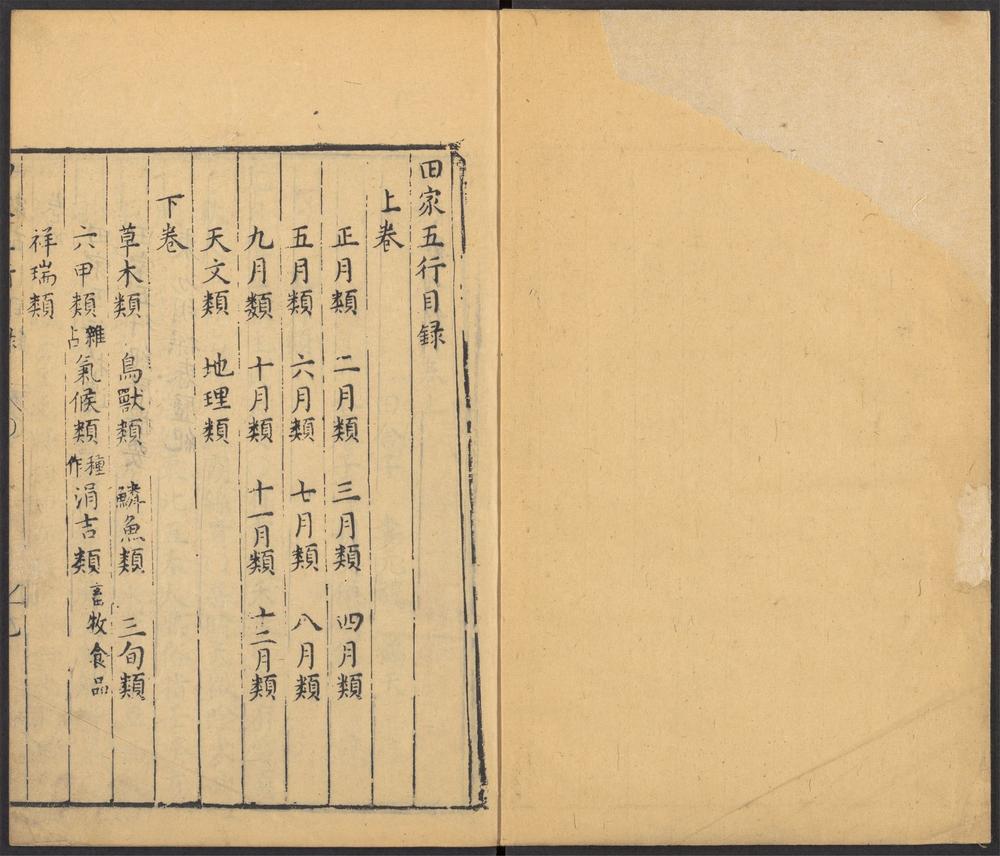 田家五行目録
上卷
正月類 二月類 三月類 四月類
五月類 六月類 七月類 八月類
九月類 十月類 十一月類 十二月類
天文類 地理類
下卷
草木類 鳥獸類 鱗魚類 三旬類
六甲類 雜占 氣候類 種作 涓吉類 畜牧食品
祥瑞類